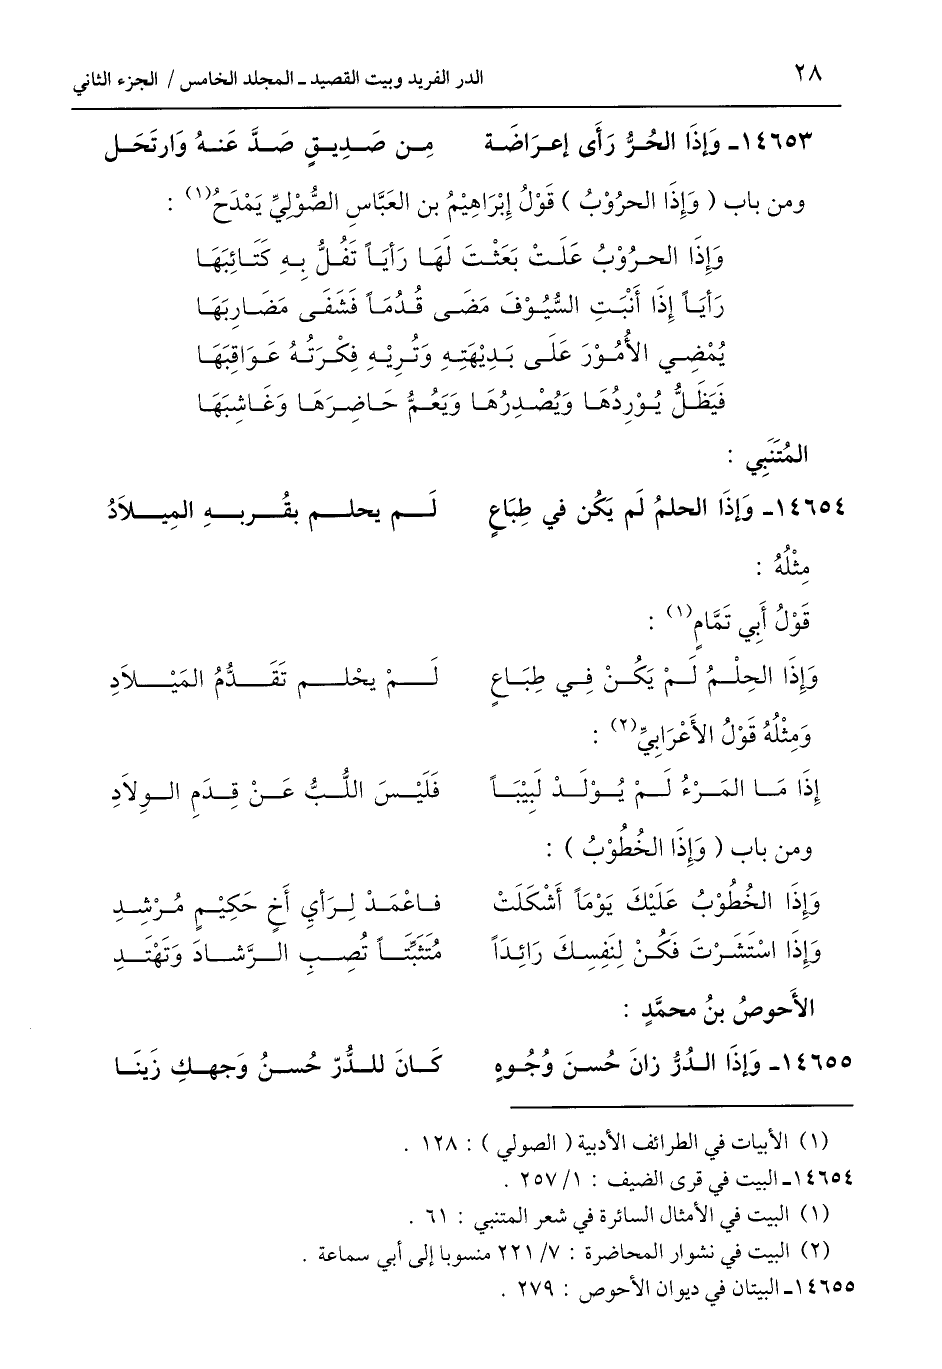 ٢٨
الدر الفريد وبيت القصيد ـ المجلد الخامس / الجزء الثاني
١٤٦٥٣ـ وَإِذَا الحُرُّ رَأَى إعرَاضَة مِن صَدِيقٍ صَدَّ عَنهُ وَارتَحَل
ومن باب ( وَإِذَا الحرُوْبُ ) قَوْلُ إِبْرَاهِيْمُ بن العَبَّاسِ الصُّوْلِيِّ يَمْدَحُ(١) :
وَإِذَا الحرُوْبُ عَلَتْ بَعَثْتَ لَهَا رَأيَاً تَفُلُّ بِهِ كَتَائِبَهَا
رَأيَاً إِذَا أَنْبَتِ السُّيُوْفَ مَضَى قُدُمَاً فَشَفَى مَضَارِبَهَا
يُمْضِي الأُمُوْرَ عَلَى بَدِيْهَتِهِ وَتُرِيْهِ فِكْرَتُهُ عَوَاقِبَهَا
فَيَظَلُّ يُوْرِدُهَا وَيُصْدِرُهَا وَيَعُمُّ حَاضِرَهَا وَغَائِبَهَا
المُتَنَبِي :
١٤٦٥٤ـ وَإِذَا الحلمُ لَم يَكُن في طِبَاعٍ لَم يحلم بقُربِهِ المِيلاَدُ
مِثْلُهُ :
قَوْلُ أَبِي تَمَّامٍ(١) :
وَإِذَا الحِلْمُ لَمْ يَكُنْ فِي طِبَاعٍ لَمْ يحْلم تَقَدُّمُ المَيْلاَدِ
وَمِثْلُهُ قَوْلُ الأَعْرَابِيِّ(٢) :
إِذَا مَا المَرْءُ لَمْ يُوْلَدْ لَبِيْبَاً فَلَيْسَ اللُّبُّ عَنْ قِدَمِ الوِلاَدِ
ومن باب ( وَإِذَا الخُطُوْبُ ) :
وَإِذَا الخُطُوْبُ عَلَيْكَ يَوْمَاً أَشْكَلَتْ فَاعْمَدْ لِرَأيِ أَخٍ حَكِيْمٍ مُرْشِدِ
وَإِذَا اسْتَشَرْتَ فَكُنْ لِنَفْسِكَ رَائِدَاً مُتَثَبِّتَاً تُصِبِ الرَّشَادَ وَتَهْتَدِ
الأَحوصُ بنُ محمَّدٍ :
١٤٦٥٥ـ وَإِذَا الدُّرُّ زانَ حُسنَ وُجُوهٍ كَانَ للدُّرّ حُسنُ وَجهكِ زَينَا
(١) الأبيات في الطرائف الأدبية ( الصولي ) : ١٢٨ .
١٤٦٥٤ـ البيت في قرى الضيف : ١/ ٢٥٧ .
(١) البيت في الأمثال السائرة في شعر المتنبي : ٦١ .
(٢) البيت في نشوار المحاضرة : ٧/ ٢٢١ منسوبا إلى أبي سماعة .
١٤٦٥٥ـ البيتان في ديوان الأحوص : ٢٧٩ .